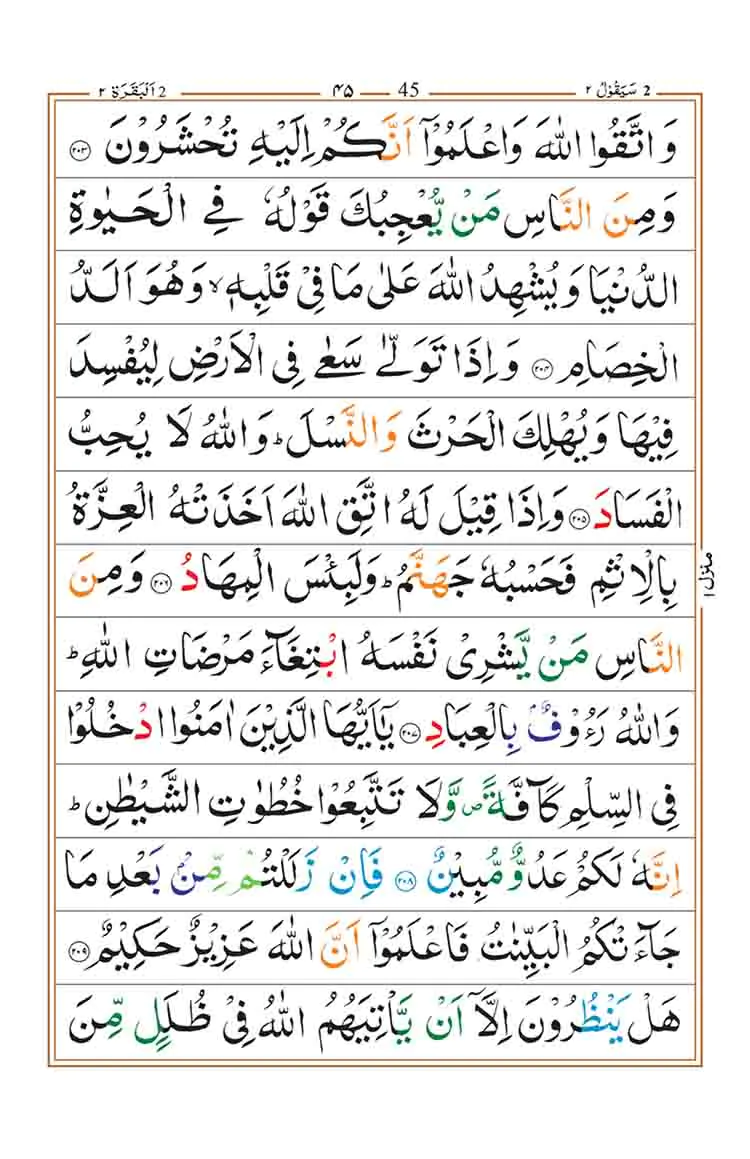 2 سَيَقُوْلُ ٢ 45 ٤٥ 2 اَلْبَقَرَة ٢
وَ اتَّقُوا اللّٰهَ وَاعْلَمُوْۤا اَنَّكُمْ اِلَيْهِ تُحْشَرُوْنَ ﴿٢٠٣﴾
وَمِنَ النَّاسِ مَنْ يُّعْجِبُكَ قَوْلُهٗ فِي الْحَيٰوةِ
الدُّنْيَا وَيُشْهِدُ اللّٰهَ عَلٰى مَا فِيْ قَلْبِهٖ ۙ وَهُوَ اَلَدُّ
الْخِصَامِ ﴿٢٠٤﴾ وَاِذَا تَوَلّٰى سَعٰى فِي الْاَرْضِ لِيُفْسِدَ
فِيْهَا وَيُهْلِكَ الْحَرْثَ وَالنَّسْلَ ؕ وَاللّٰهُ لَا يُحِبُّ
الْفَسَادَ ﴿٢٠٥﴾ وَاِذَا قِيْلَ لَهُ اتَّقِ اللّٰهَ اَخَذَتْهُ الْعِزَّةُ
بِالْاِثْمِ فَحَسْبُهٗ جَهَنَّمُ ؕ وَلَبِئْسَ الْمِهَادُ ﴿٢٠٦﴾ وَمِنَ
النَّاسِ مَنْ يَّشْرِيْ نَفْسَهُ ابْتِغَآءَ مَرْضَاتِ اللّٰهِ ؕ
وَاللّٰهُ رَءُوْفٌۢ بِالْعِبَادِ ﴿٢٠٧﴾ يٰۤاَيُّهَا الَّذِيْنَ اٰمَنُوا ادْخُلُوْا
فِي السِّلْمِ كَآفَّةً ۪ وَّلَا تَتَّبِعُوْا خُطُوٰتِ الشَّيْطٰنِ ؕ
اِنَّهٗ لَكُمْ عَدُوٌّ مُّبِيْنٌ ﴿٢٠٨﴾ فَاِنْ زَلَلْتُمْ مِّنْۢ بَعْدِ مَا
جَآءَتْكُمُ الْبَيِّنٰتُ فَاعْلَمُوْۤا اَنَّ اللّٰهَ عَزِيْزٌ حَكِيْمٌ ﴿٢٠٩﴾
هَلْ يَنْظُرُوْنَ اِلَّاۤ اَنْ يَّاْتِيَهُمُ اللّٰهُ فِيْ ظُلَلٍ مِّنَ
منزل ١